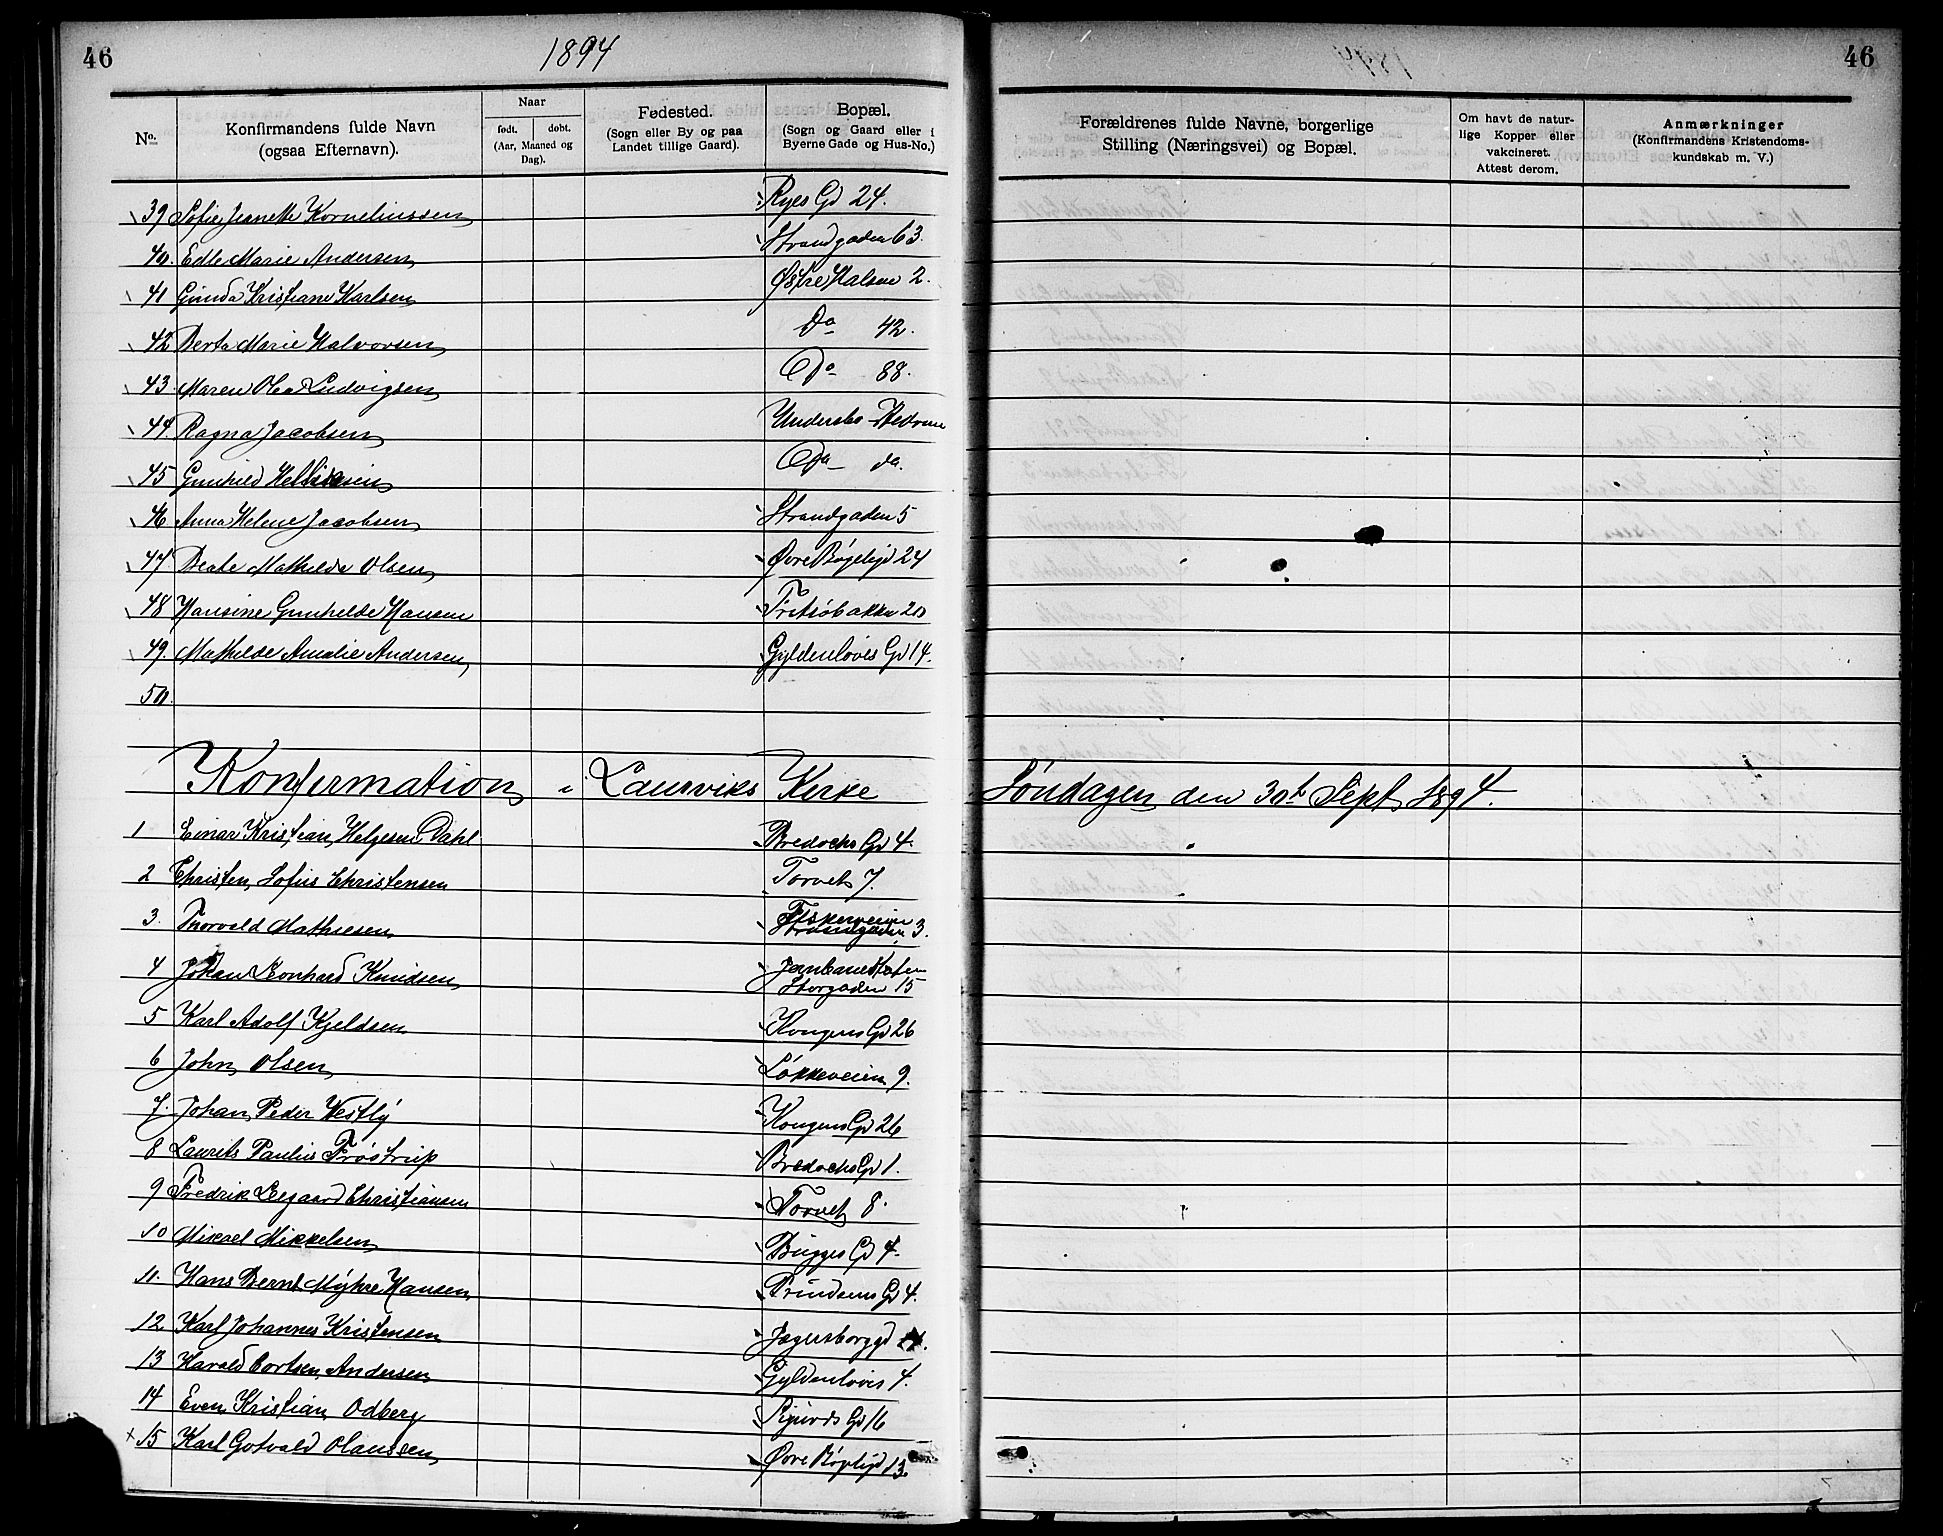 46
1894
46
No. Konfirmandens fulde Navn (ogsaa Efternavn). Naar født. døbt. (Aar, Maaned og Dag). Fødested. (Sogn eller By og paa Landet tillige Gaard). Bopæl. (Sogn og Gaard eller i Byerne Gade og Hus-No.) Forældrenes fulde Navne, borgerlige Stilling (Næringsvei) og Bopæl. Om havt de naturlige Kopper eller vakcineret. Attest derom. Anmærkninger (Konfirmandens Kristendomskundskab m. V.)
39 Sofie Jeanette Korneliussen Ryes Gd 24.
40. Edle Marie Andersen Strandgaden 63.
41 Gunda Kristiane Karlsen Østre Halsen 2.
42 Berta Marie Halvorsen Do 42.
43. Maren Olea Ludvigsen Do 88.
44. Ragna Jacobsen
45 Gunhild Do do.
46 Anna Helene Jacobsen Strandgaden 5
47 Beate Mathilde Olsen Øvre Bøgeligd 24
48 Hansine Gunhilde Hansen Fritsøbakke 20
49. Mathilde Amalie Andersen Gyldenløves Gd 14.
50.
Konfirmation i Laurviks Kirke Søndagen den 30t Sept. 1894.
1 Einar Kristian Helgesen Dahl Bredochs Gd 4.
2 Christen Sofus Christensen Torvet 7.
3. Thorvald Mathiesen Fiskerveien Strandgaden 3.
4 Johan Leonhard Knudsen Storgaden 15
5 Karl Adolf Kjeldsen Kongens Gd 26
6 John Olsen Løkkeveien 9.
7. Johan Peder Vestly Kongens Gd 26
8 Laurits Paulius Frøstrup Bredochs Gd 1.
9 Fredrik Leegaard Christiansen Torvet 8.
10 Mikael Mikkelsen Bugges Gd 4.
11. Hans Bernt Myhre Hansen Prindsens Gd 4.
12 Karl Johannes Kristensen Jegersborggd
13 Harald Cortsen Andersen Gyldenløves 4.
14 Even Kristian Odberg Gd 16
× 15 Karl Gotvald Olaussen Øvre Bøgeligd 13.